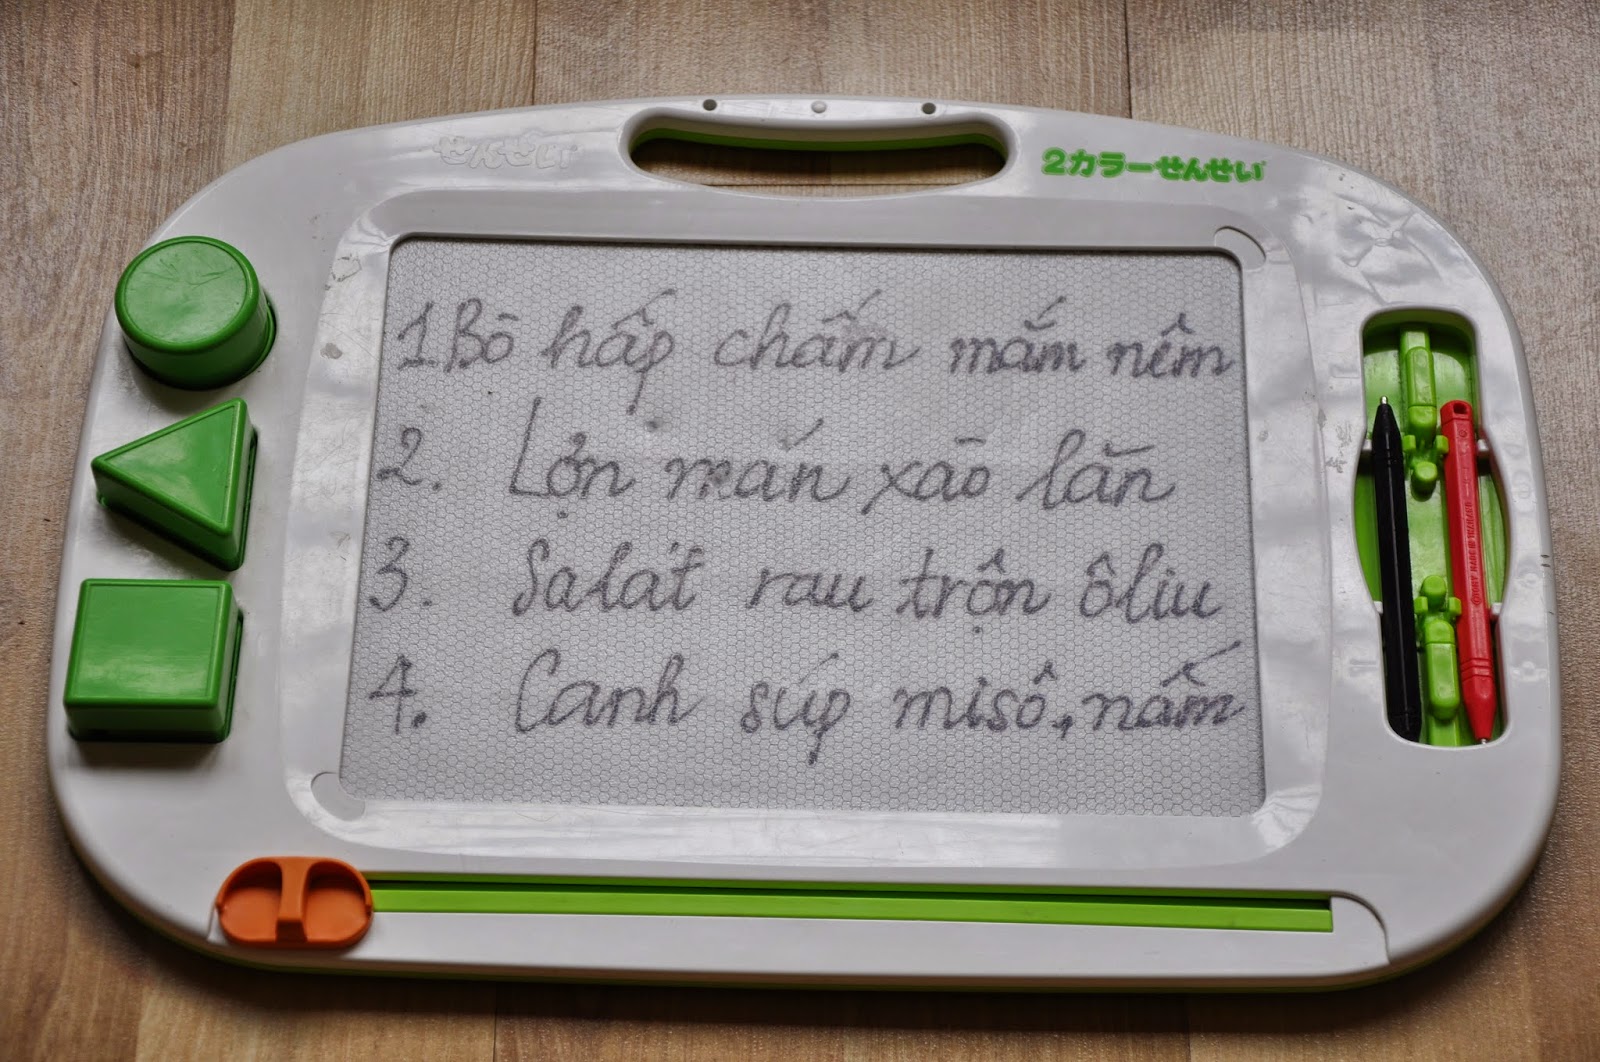 せんせい
2カラーせんせい
1. Bò hấp chấm mắm nêm
2. Lợn mán xào lăn
3. Salát rau trộn ôliu
4. Canh súp misô, nấm